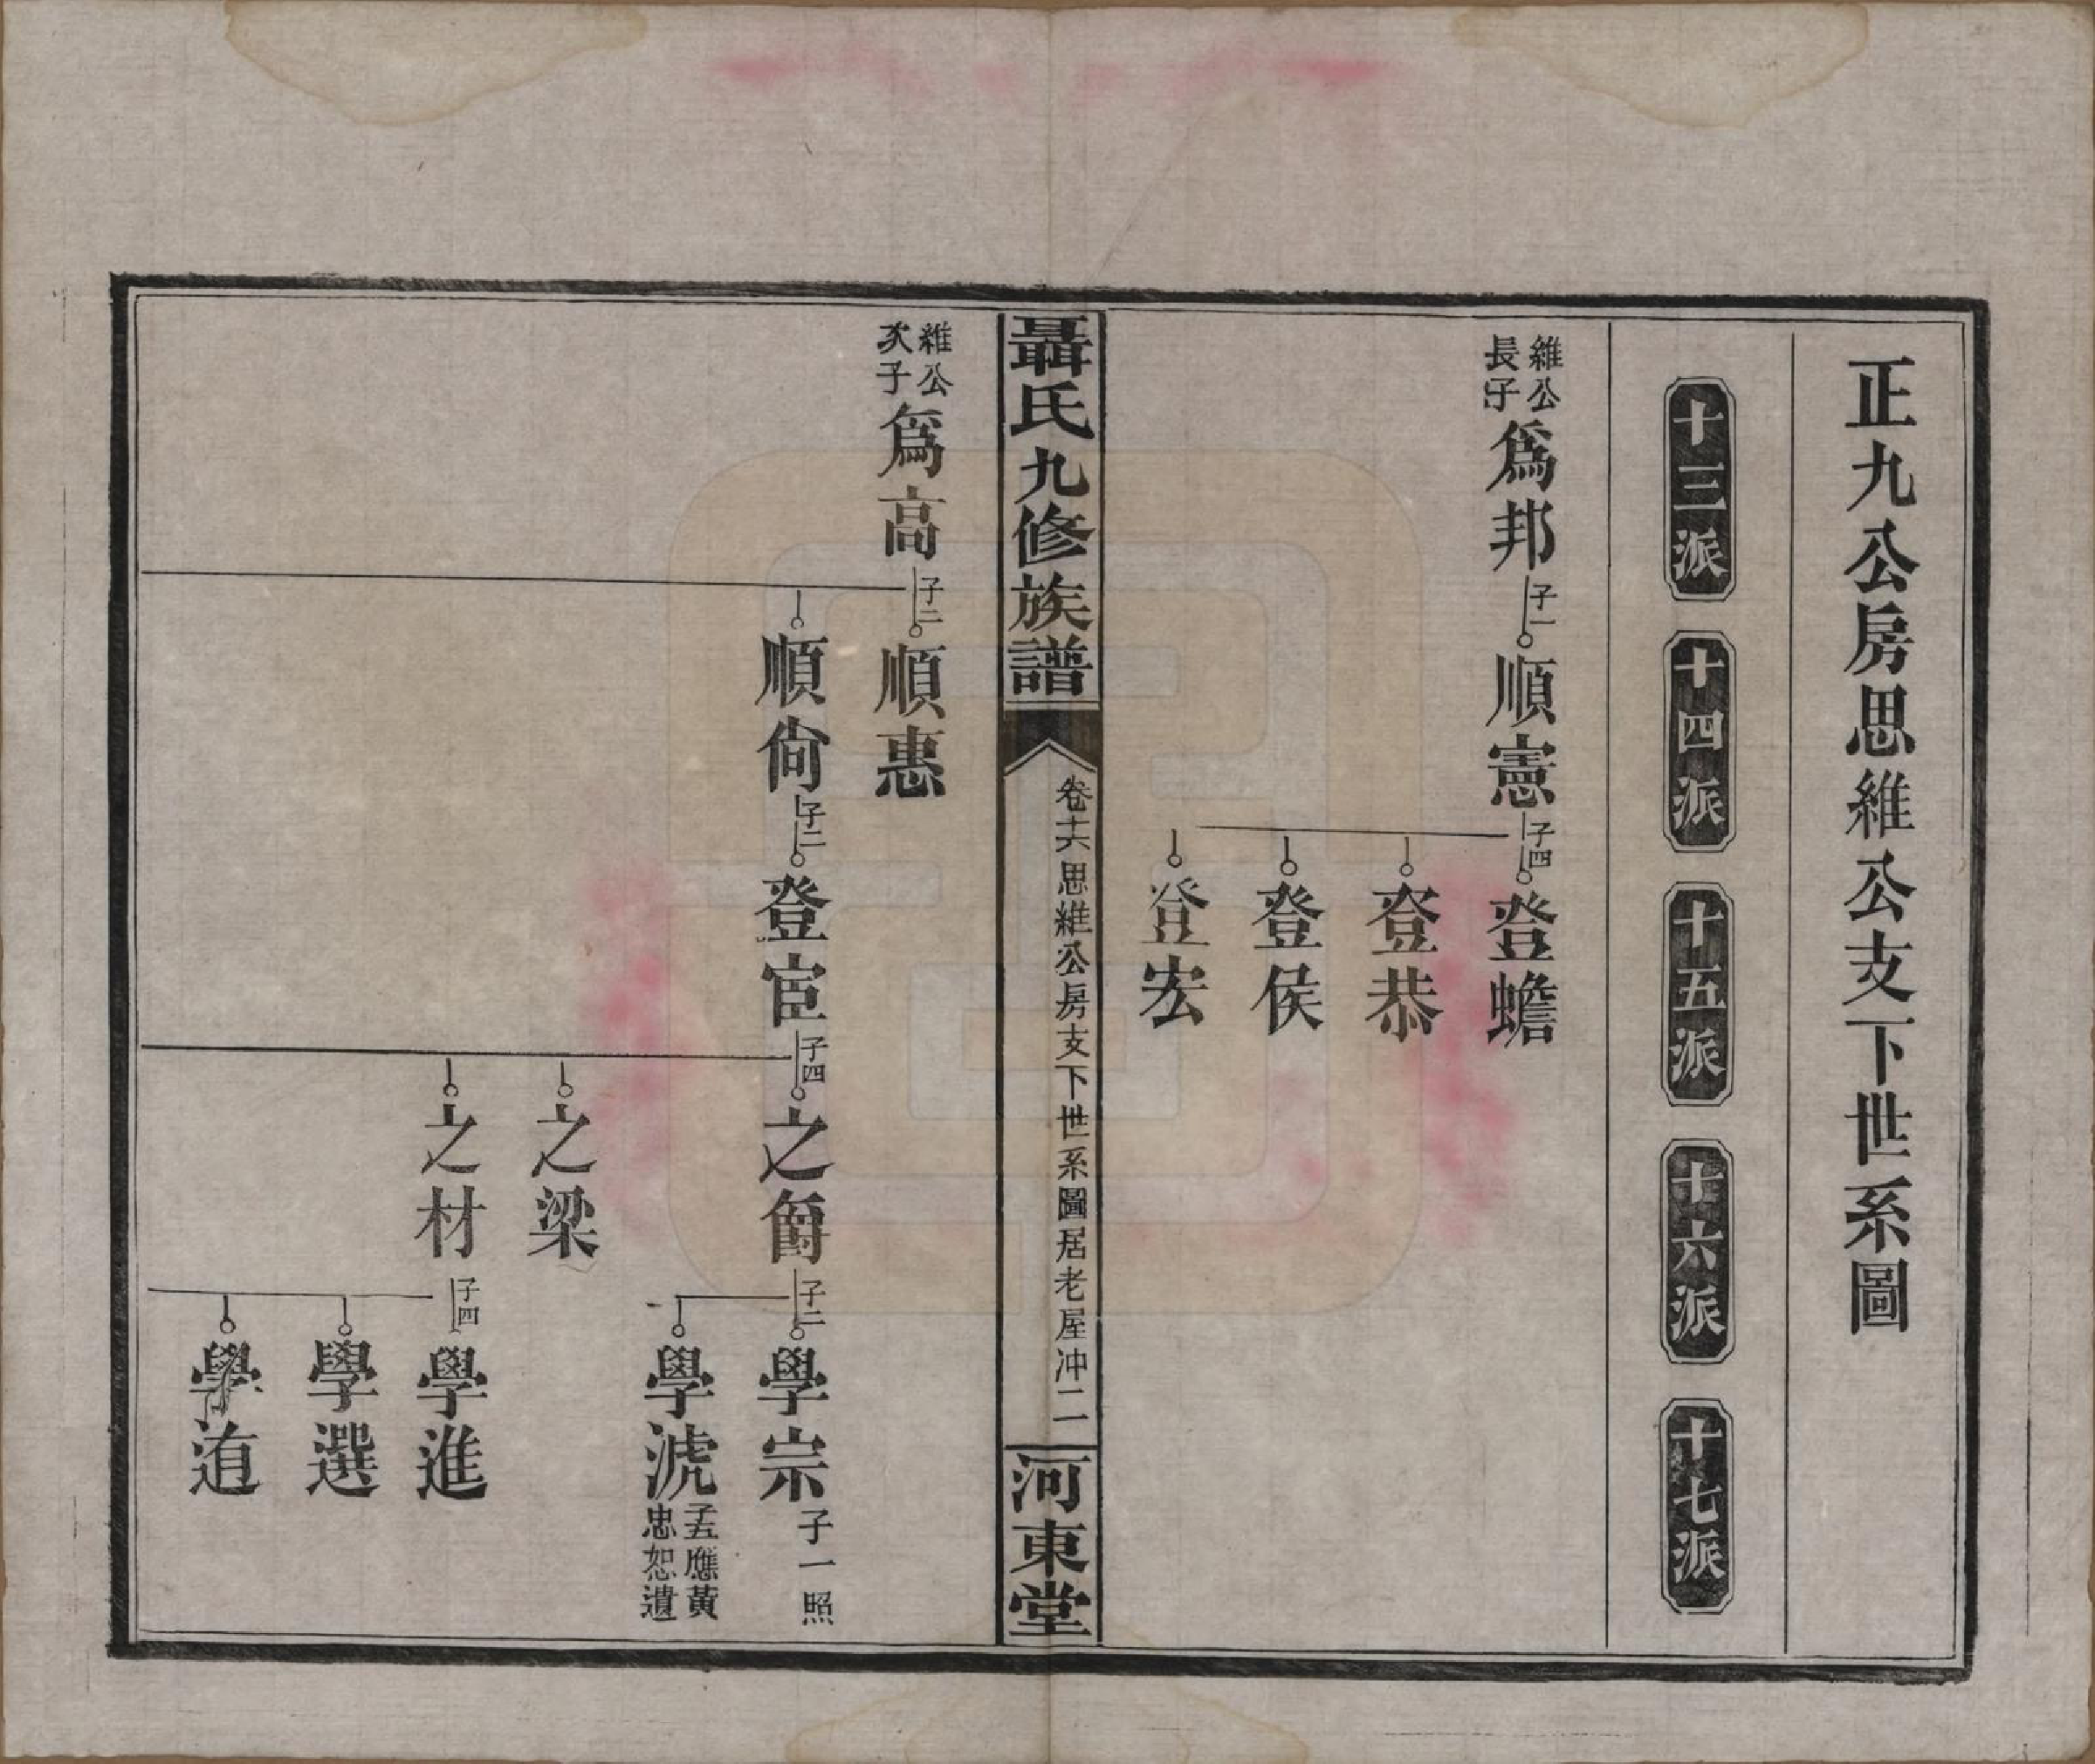 正九公房思維公支下世系圖
十三派
十四派
十五派
十六派
十七派
維公長子
爲邦
子一
順憲
子四
登蟾
登恭
登侯
登宏
聶氏九修族譜
卷十六思維公房支下世系圖居老屋冲二
河東堂
維公次子
爲高
子二
順惠
順尙
子二
登宦
子四
之爵
子二
學宗
子一照
學淲
子五應黃忠恕遺
之梁
之材
子四
學進
學選
學逌